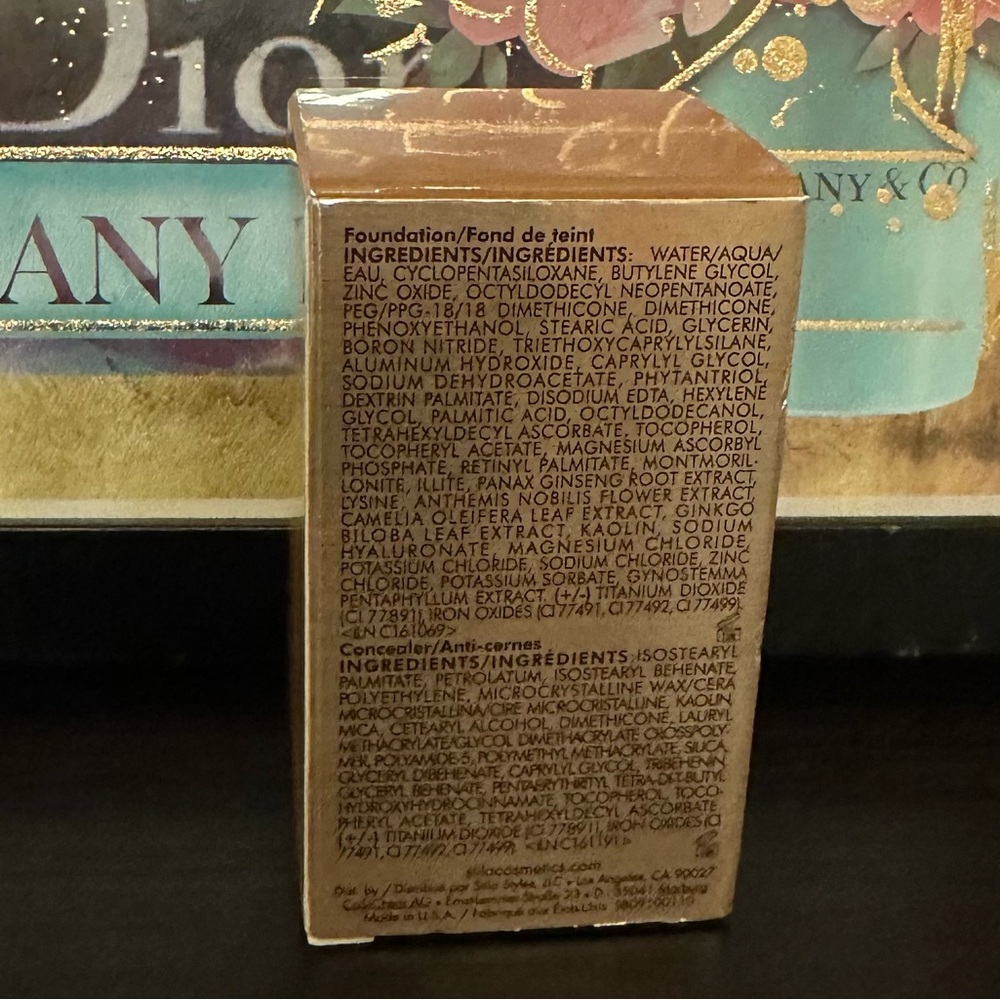 Dior
ANY
ANY & Co
Foundation/Fond de teint
INGREDIENTS/INGRÉDIENTS: WATER/AQUA/
EAU, CYCLOPENTASILOXANE, BUTYLENE GLYCOL,
ZINC OXIDE, OCTYLDODECYL NEOPENTANOATE,
PEG/PPG-18/18 DIMETHICONE, DIMETHICONE,
PHENOXYETHANOL, STEARIC ACID, GLYCERIN,
BORON NITRIDE, TRIETHOXYCAPRYLYLSILANE,
ALUMINUM HYDROXIDE, CAPRYLYL GLYCOL,
SODIUM DEHYDROACETATE, PHYTANTRIOL,
DEXTRIN PALMITATE, DISODIUM EDTA, HEXYLENE
GLYCOL, PALMITIC ACID, OCTYLDODECANOL,
TETRAHEXYLDECYL ASCORBATE, TOCOPHEROL,
TOCOPHERYL ACETATE, MAGNESIUM ASCORBYL
PHOSPHATE, RETINYL PALMITATE, MONTMORIL-
LONITE, ILLITE, PANAX GINSENG ROOT EXTRACT,
LYSINE, ANTHEMIS NOBILIS FLOWER EXTRACT,
CAMELIA OLEIFERA LEAF EXTRACT, GINKGO
BILOBA LEAF EXTRACT, KAOLIN, SODIUM
HYALURONATE, MAGNESIUM CHLORIDE,
POTASSIUM CHLORIDE, SODIUM CHLORIDE, ZINC
CHLORIDE, POTASSIUM SORBATE, GYNOSTEMMA
PENTAPHYLLUM EXTRACT. (+/-) TITANIUM DIOXIDE
(CI 77891), IRON OXIDES (CI 77491, CI 77492, CI 77499).
<ILN C161069>
Concealer/Anti-cernes
INGREDIENTS/INGRÉDIENTS: ISOSTEARYL
PALMITATE, PETROLATUM, ISOSTEARYL BEHENATE,
POLYETHYLENE, MICROCRYSTALLINE WAX/CERA
MICROCRISTALLINA/CIRE MICROCRISTALLINE, KAOLIN
MICA, CETEARYL ALCOHOL, DIMETHICONE, LAURYL
METHACRYLATE/GLYCOL DIMETHACRYLATE CROSSPOLY-
MER, POLYAMIDE-5, POLYMETHYL METHACRYLATE, SILICA,
GLYCERYL DIBEHENATE, CAPRYLYL GLYCOL, TRIBEHENIN,
GLYCERYL BEHENATE, PENTAERYTHRITYL TETRA-DI-T-BUTYL
HYDROXYHYDROCINNAMATE, TOCOPHEROL, TOCO-
PHERYL ACETATE, TETRAHEXYLDECYL ASCORBATE
(+/-) TITANIUM DIOXIDE (CI 77891), IRON OXIDES (CI
77491, CI 77492, CI 77499). <ILN C161191>
stilacosmetics.com
Dist. by / Distribué par Stila Styles, LLC • Los Angeles, CA 90027
AG • 23 • D
Made in U.S.A. / Fabriqué aux États-Unis